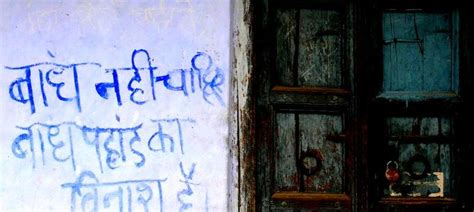 बांध नहीं चाहिए
बांध पहाड़ का
विनाश है